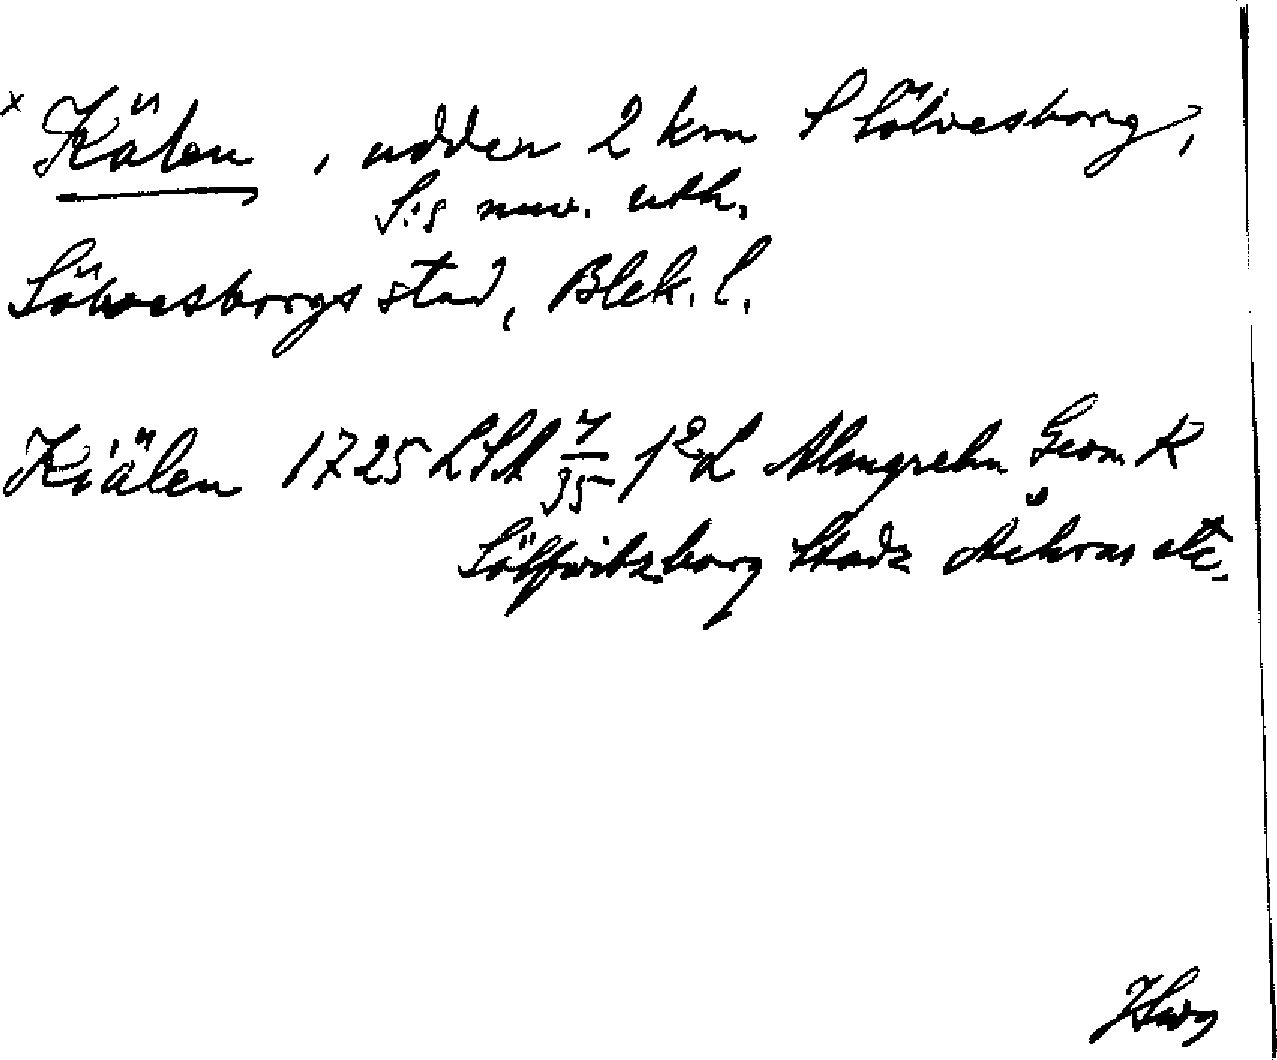 x Kälen, udden 2 km S Sölvesborg,
S:s nuv. uth.
Sölvesborgs stad, Blek. l.
Kiälen 1725 LSA 1²L Almgrehn Geom K
Sölfwitzborg Stadz Åchrar etc.